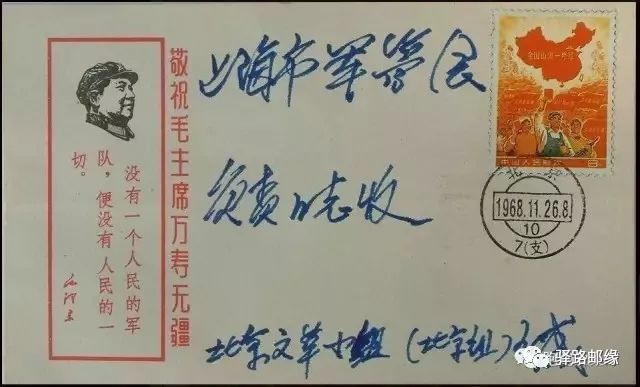 敬祝毛主席万寿无疆
没有一个人民的军
队，便没有人民的一
切。
毛泽东
上海市军管会
负责同志收
北京文革小组（北京组）
全国山河一片红
中国人民邮政 8
北京
1968.11.26.8
10
7(支)
驿路邮缘